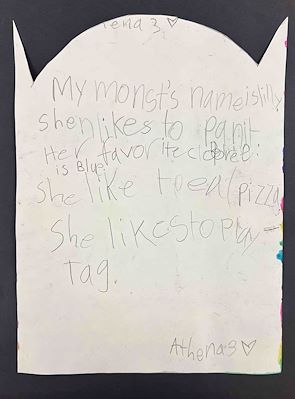 ena 3 ♡
My monst's name is lilly
shen likes to panit
Her favorite
is Blue.
She like to eat pizza
She likes to play
tag.
Athena 3 ♡